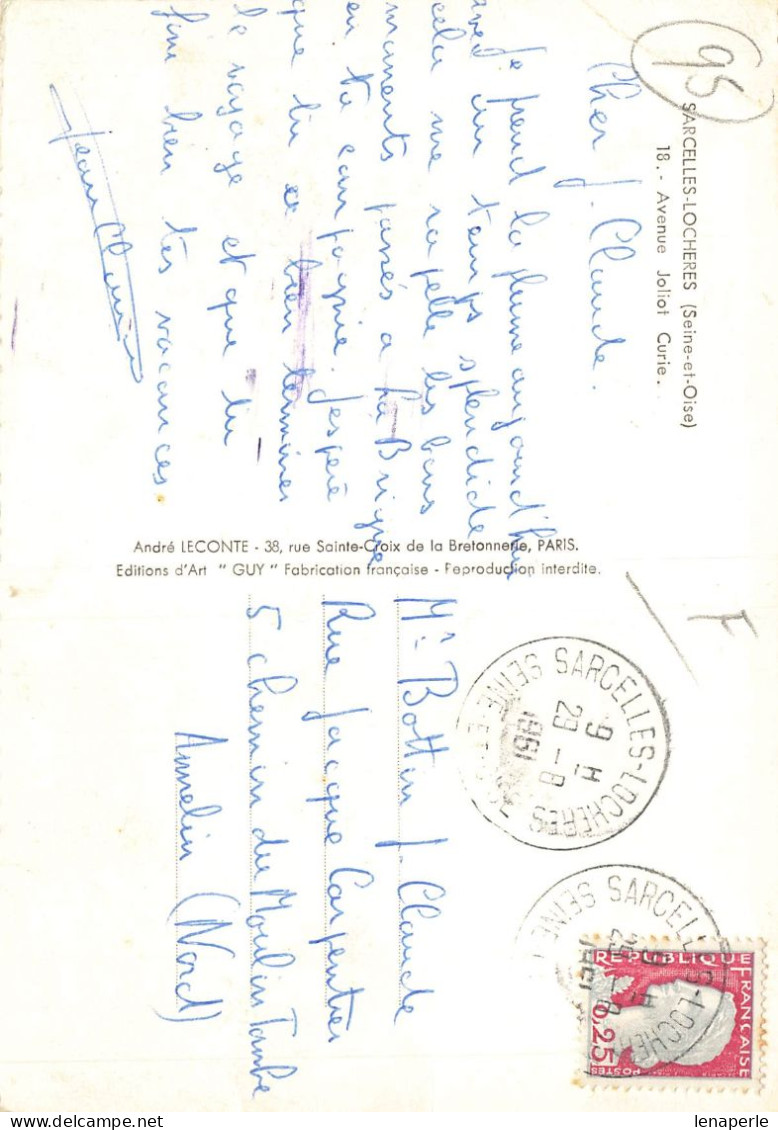 95
SARCELLES-LOCHERES (Seine-et-Oise)
18. - Avenue Joliot Curie.
Cher J. Claude.
Je prend la plume aujourd'hui
avec un temps splendide
cela me rapelle les bons
moments passés a La Brigue
en ta compagnie. J'espère
que tu a bien terminer
le voyage et que tu
fini bien tes vacances.
Jean Claude
André LECONTE - 38, rue Sainte-Croix de la Bretonnerie, PARIS.
Editions d'Art " GUY " Fabrication française - Reproduction interdite.
F
SARCELLES-LOCHERES
SEINE-ET-
9 H
29-8
1961
SARCELLES-LOCHERES
SEINE
9 H
29-8
1961
REPUBLIQUE FRANÇAISE
0,25
POSTES
Mr Bottin J. Claude
Rue Jacque Carpentier
5 chemin du Moulin Tambe
Annelin (Nord)
lenaperle